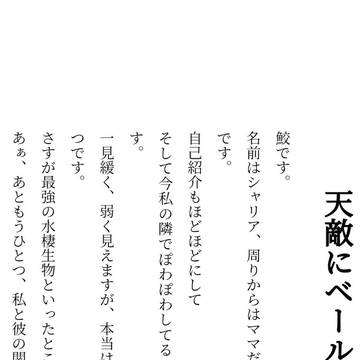 天敵にベール
鮫です。
名前はシャリア、周りからはママだ
です。
自己紹介もほどほどにして
そして今私の隣でぽわぽわしてる
す。
一見緩く、弱く見えますが、本当は
つです。
さすが最強の水棲生物といったとこ
あぁ、あともうひとつ、私と彼の関